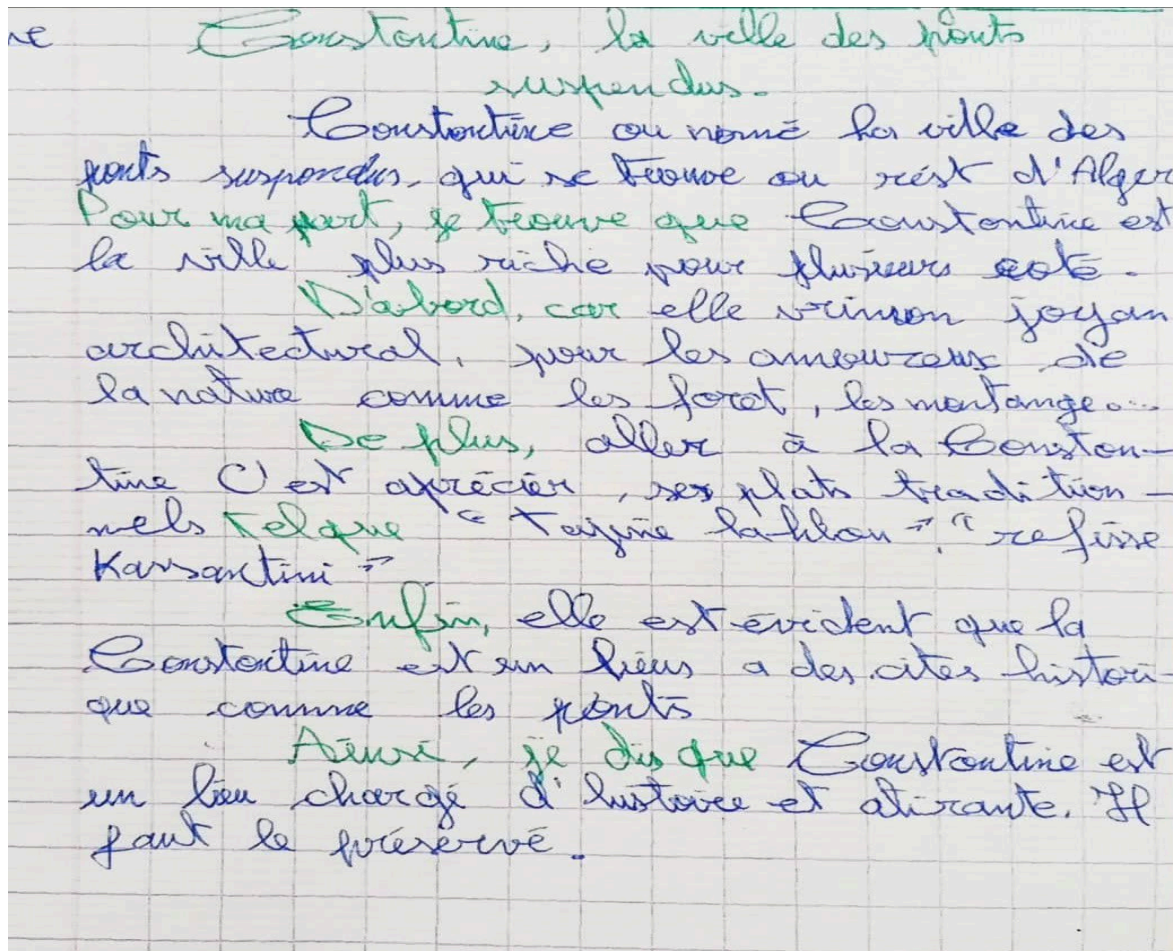 re Constontine, la ville des ponts
suspendus.
Constontine ou nomé la ville des
ponts suspondus, qui se trouve au rest d'Alger
Pour ma part, je trouve que Constontine est
la ville plus riche pour plusieurs coté.
D'abord, car elle joyau
architectural, pour les amoureux de
la nature comme les foret, les montange...
De plus, aller à la Conston-
tine C'est aprécier, ses plats tradition-
nels tel que " Tajine lahlou ", " refisse
Kassantini "
Enfin, elle est évident que la
Constontine est un lieus a des cites histori-
que comme les ponts
Ainsi, je dis que Constontine est
un lieu chargé d'histoire et atirante. Il
faut le préservé.